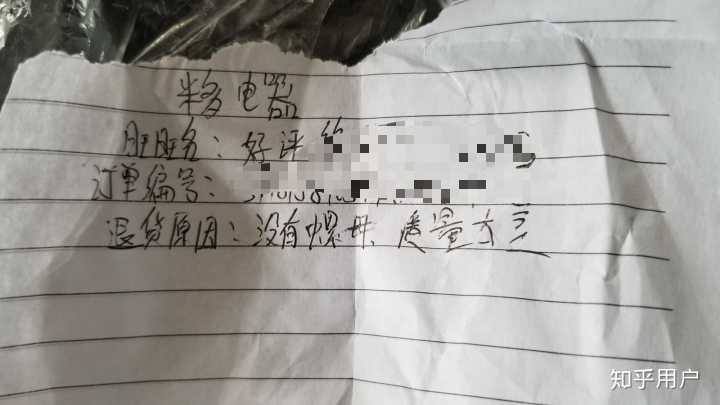 米多电器
旺旺名：好评
订单编号：
退货原因：没有螺母，质量方
知乎用户